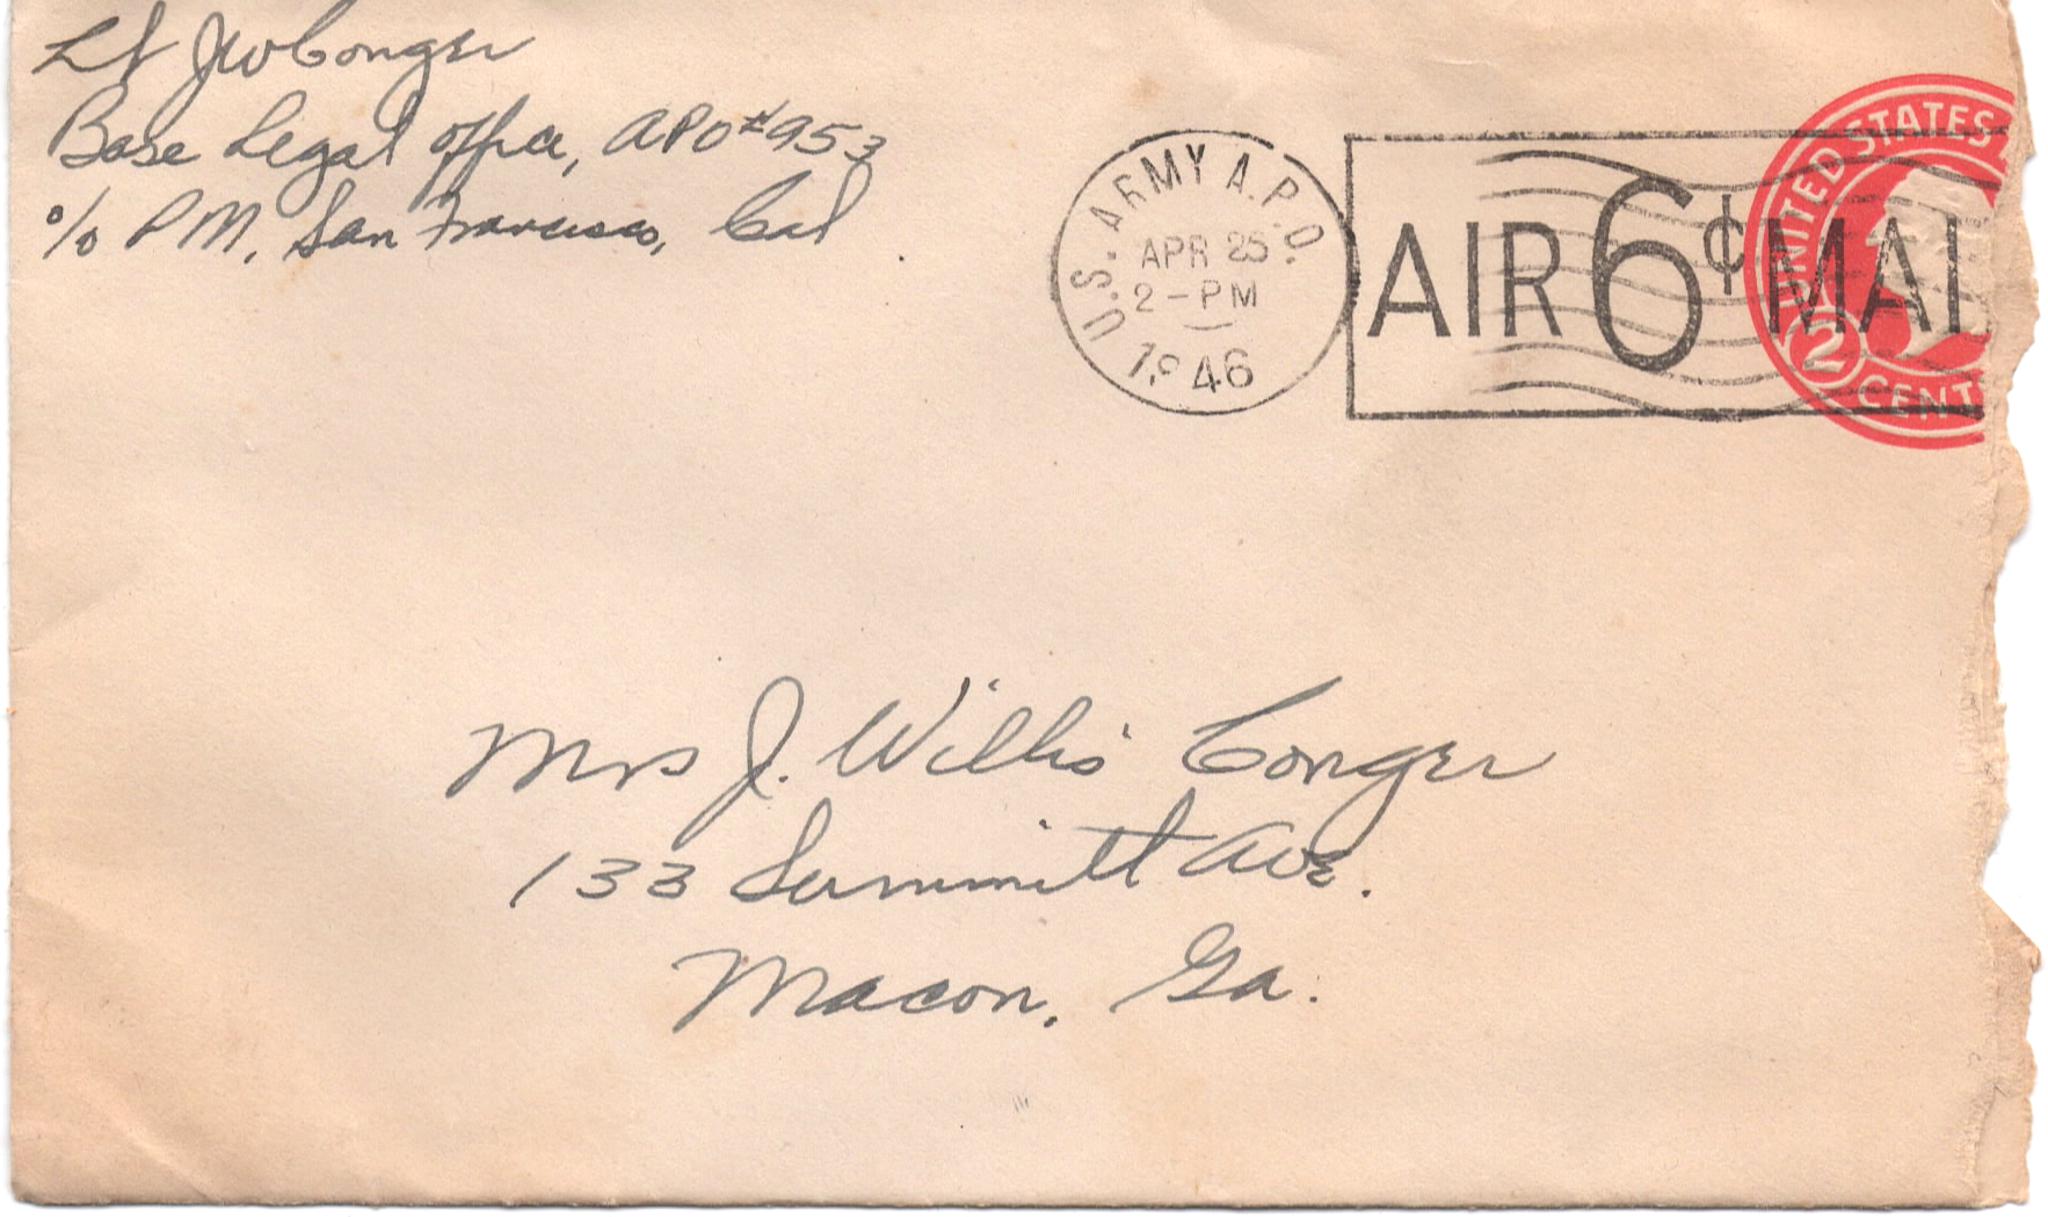 Lt JW Conger
Base Legal Office, APO #953
c/o PM, San Francisco, Cal
U.S. ARMY A.P.O.
APR 25
2-PM
1946
AIR 6¢ MAIL
UNITED STATES
2
CENT
Mrs J. Willis Conger
133 Summitt Ave.
Macon, Ga.